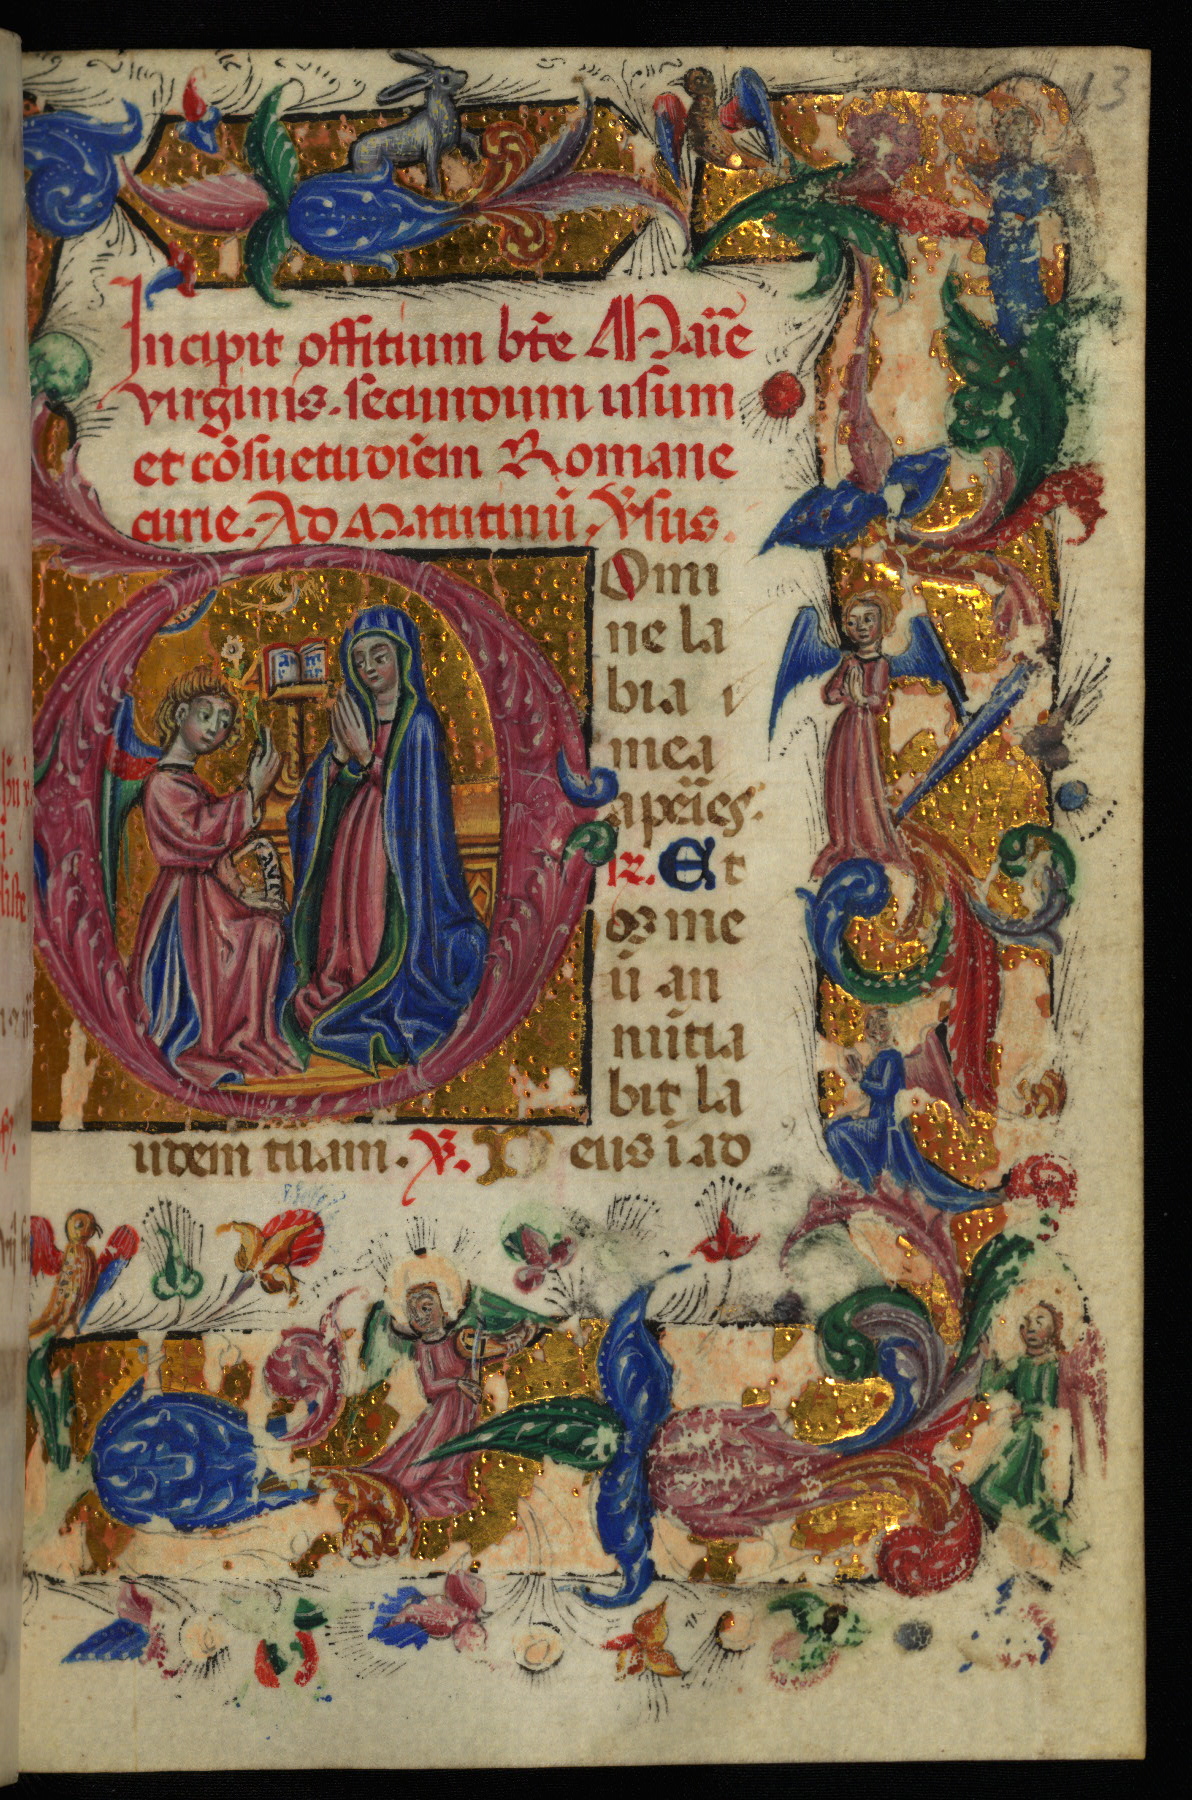 13
Incipit offitium bt̄e Mar̄ie
virginis. secundum usum
et cōsuetudiēm Romane
curie. Ad Matutinū. V̄sus.
Domi
ne la
bia
mea
aperies.
R. Et
os me
ū an
nūtia
bit la
udem tuam. V. Deus ī ad